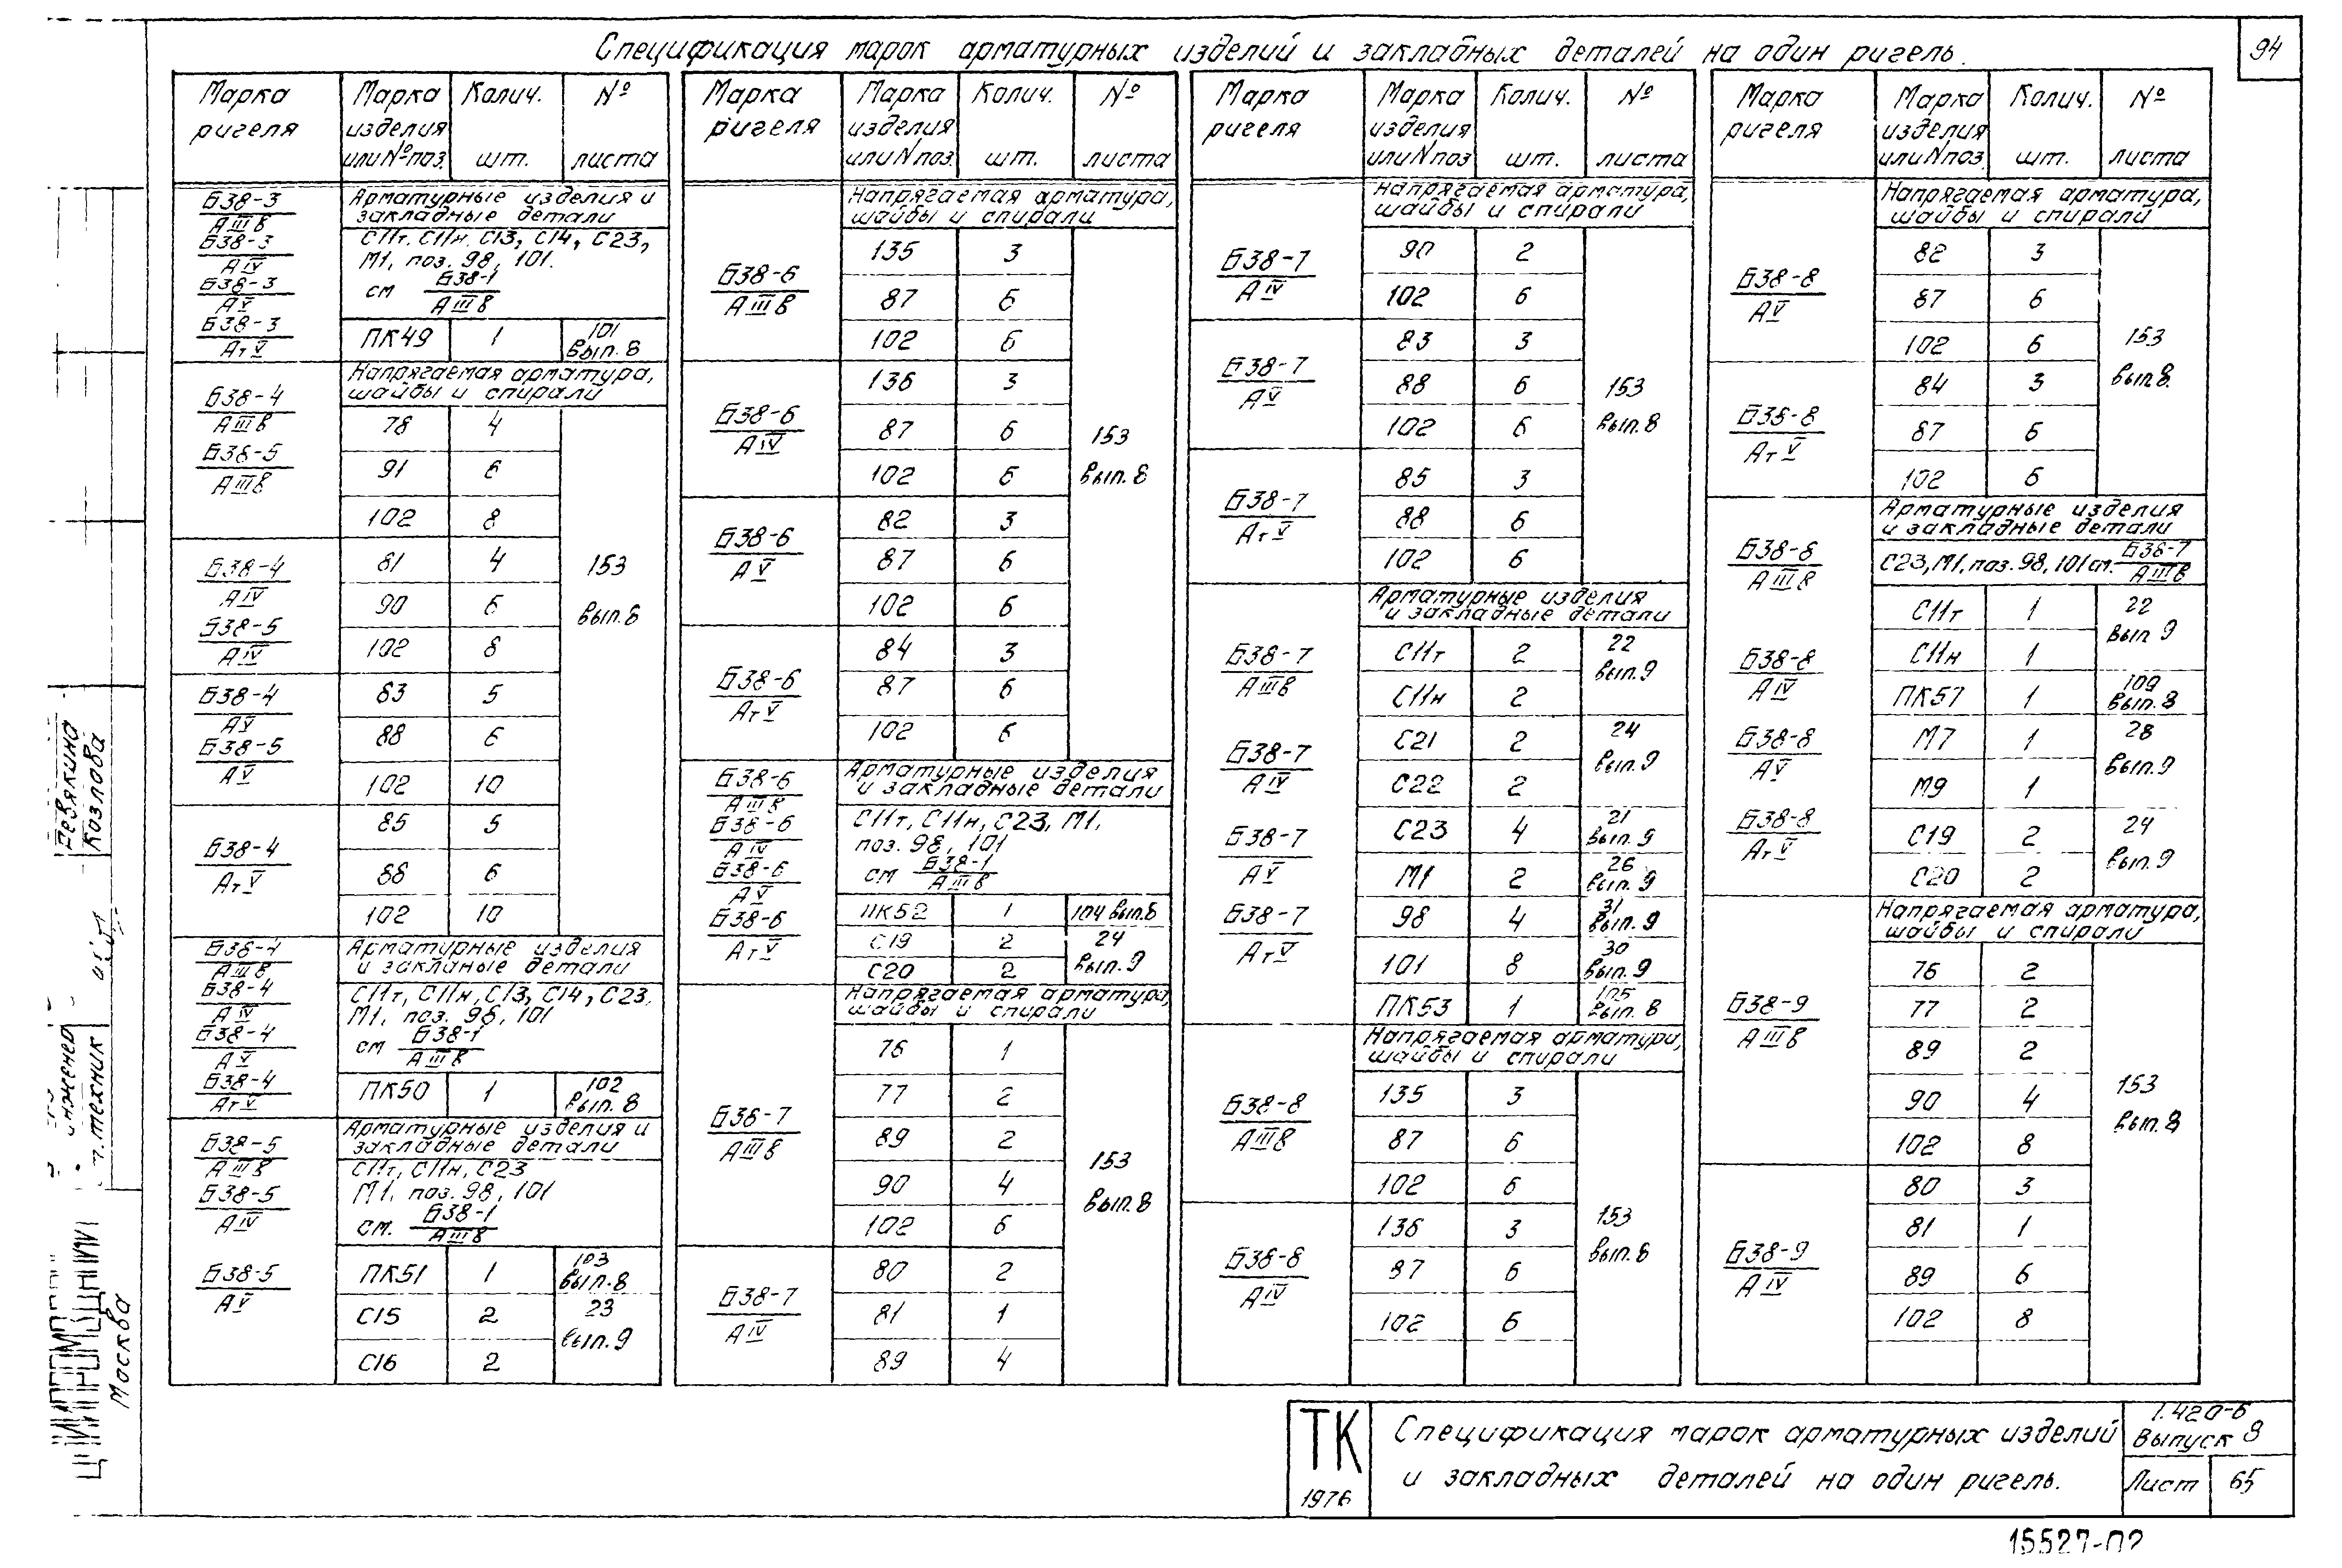 94
Спецификация марок арматурных изделий и закладных деталей на один ригель.
Марка ригеля | Марка изделия или № поз. | Колич. шт. | № листа
Б38-3 АIIIв
Б38-3 АIV
Б38-3 АV
Б38-3 АтV
Арматурные изделия и
закладные детали
С11т, С11н, С13, С14, С23,
М1, поз. 98, 101.
см Б38-1 АIIIв
ПК49 1 101 Вып. 8
Напрягаемая арматура,
шайбы и спирали
Б38-4 АIIIв
Б38-5 АIIIв
78 4
91 6
102 8
Б38-4 АIV
Б38-5 АIV
81 4
90 6
102 8
153
Вып. 8
Б38-4 АV
Б38-5 АV
83 5
88 6
102 10
Б38-4 АтV
85 5
88 6
102 10
Б38-4 АIIIв
Б38-4 АIV
Б38-4 АV
Б38-4 АтV
Арматурные изделия
и закладные детали
С11т, С11н, С13, С14, С23,
М1, поз. 98, 101
см Б38-1 АIIIв
ПК50 1 102 Вып. 8
Б38-5 АIIIв
Б38-5 АIV
Б38-5 АV
Арматурные изделия и
закладные детали
С11т, С11н, С23
М1, поз. 98, 101
см. Б38-1 АIIIв
ПК51 1 103 Вып. 8
С15 2 23
С16 2 Вып. 9
Марка ригеля | Марка изделия или N поз | Колич. шт. | № листа
Напрягаемая арматура,
шайбы и спирали
Б38-6 АIIIв
135 3
87 6
102 6
Б38-6 АIV
136 3
87 6
102 6
153
Вып. 8
Б38-6 АV
82 3
87 6
102 6
Б38-6 АтV
84 3
87 6
102 6
Б38-6 АIIIв
Б38-6 АIV
Б38-6 АV
Б38-6 АтV
Арматурные изделия
и закладные детали
С11т, С11н, С23, М1,
поз. 98, 101
см Б38-1 АIIIв
ПК52 1 104 Вып. 8
С19 2 24
С20 2 Вып. 9
Напрягаемая арматура,
шайбы и спирали
Б38-7 АIIIв
76 1
77 2
89 2
90 4
102 6
153
Вып. 8
Б38-7 АIV
80 2
81 1
89 4
Марка ригеля | Марка изделия или N поз | Колич. шт. | № листа
Напрягаемая арматура,
шайбы и спирали
Б38-7 АIV
90 2
102 6
Б38-7 АV
83 3
88 6
102 6
153
Вып. 8
Б38-7 АтV
85 3
88 6
102 6
Б38-7 АIIIв
Б38-7 АIV
Б38-7 АV
Б38-7 АтV
Арматурные изделия
и закладные детали
С11т 2 22
С11н 2 Вып. 9
С21 2 24
С22 2 Вып. 9
С23 4 21 Вып. 9
М1 2 26 Вып. 9
98 4 31 Вып. 9
101 8 30 Вып. 9
ПК53 1 105 Вып. 8
Напрягаемая арматура,
шайбы и спирали
Б38-8 АIIIв
135 3
87 6
102 6
Б38-8 АIV
136 3
87 6
102 6
153
Вып. 8
Марка ригеля | Марка изделия или N поз. | Колич. шт. | № листа
Напрягаемая арматура,
шайбы и спирали
Б38-8 АV
82 3
87 6
102 6
153
Вып. 8
Б38-8 АтV
84 3
87 6
102 6
Б38-8 АIIIв
Б38-8 АIV
Б38-8 АV
Б38-8 АтV
Арматурные изделия
и закладные детали
С23, М1, поз. 98, 101 см. Б38-7 АIIIв
С11т 1 22
С11н 1 Вып 9
ПК57 1 109 Вып. 8
М7 1 28
М9 1 Вып. 9
С19 2 24
С20 2 Вып. 9
Напрягаемая арматура,
шайбы и спирали
Б38-9 АIIIв
76 2
77 2
89 2
90 4
102 8
153
Вып. 8
Б38-9 АIV
80 3
81 1
89 6
102 8
Ревякина
Козлова
инженер
техник
Москва
ТК
1976
Спецификация марок арматурных изделий
и закладных деталей на один ригель.
1.420-6
Выпуск 8
Лист 65
15527-02